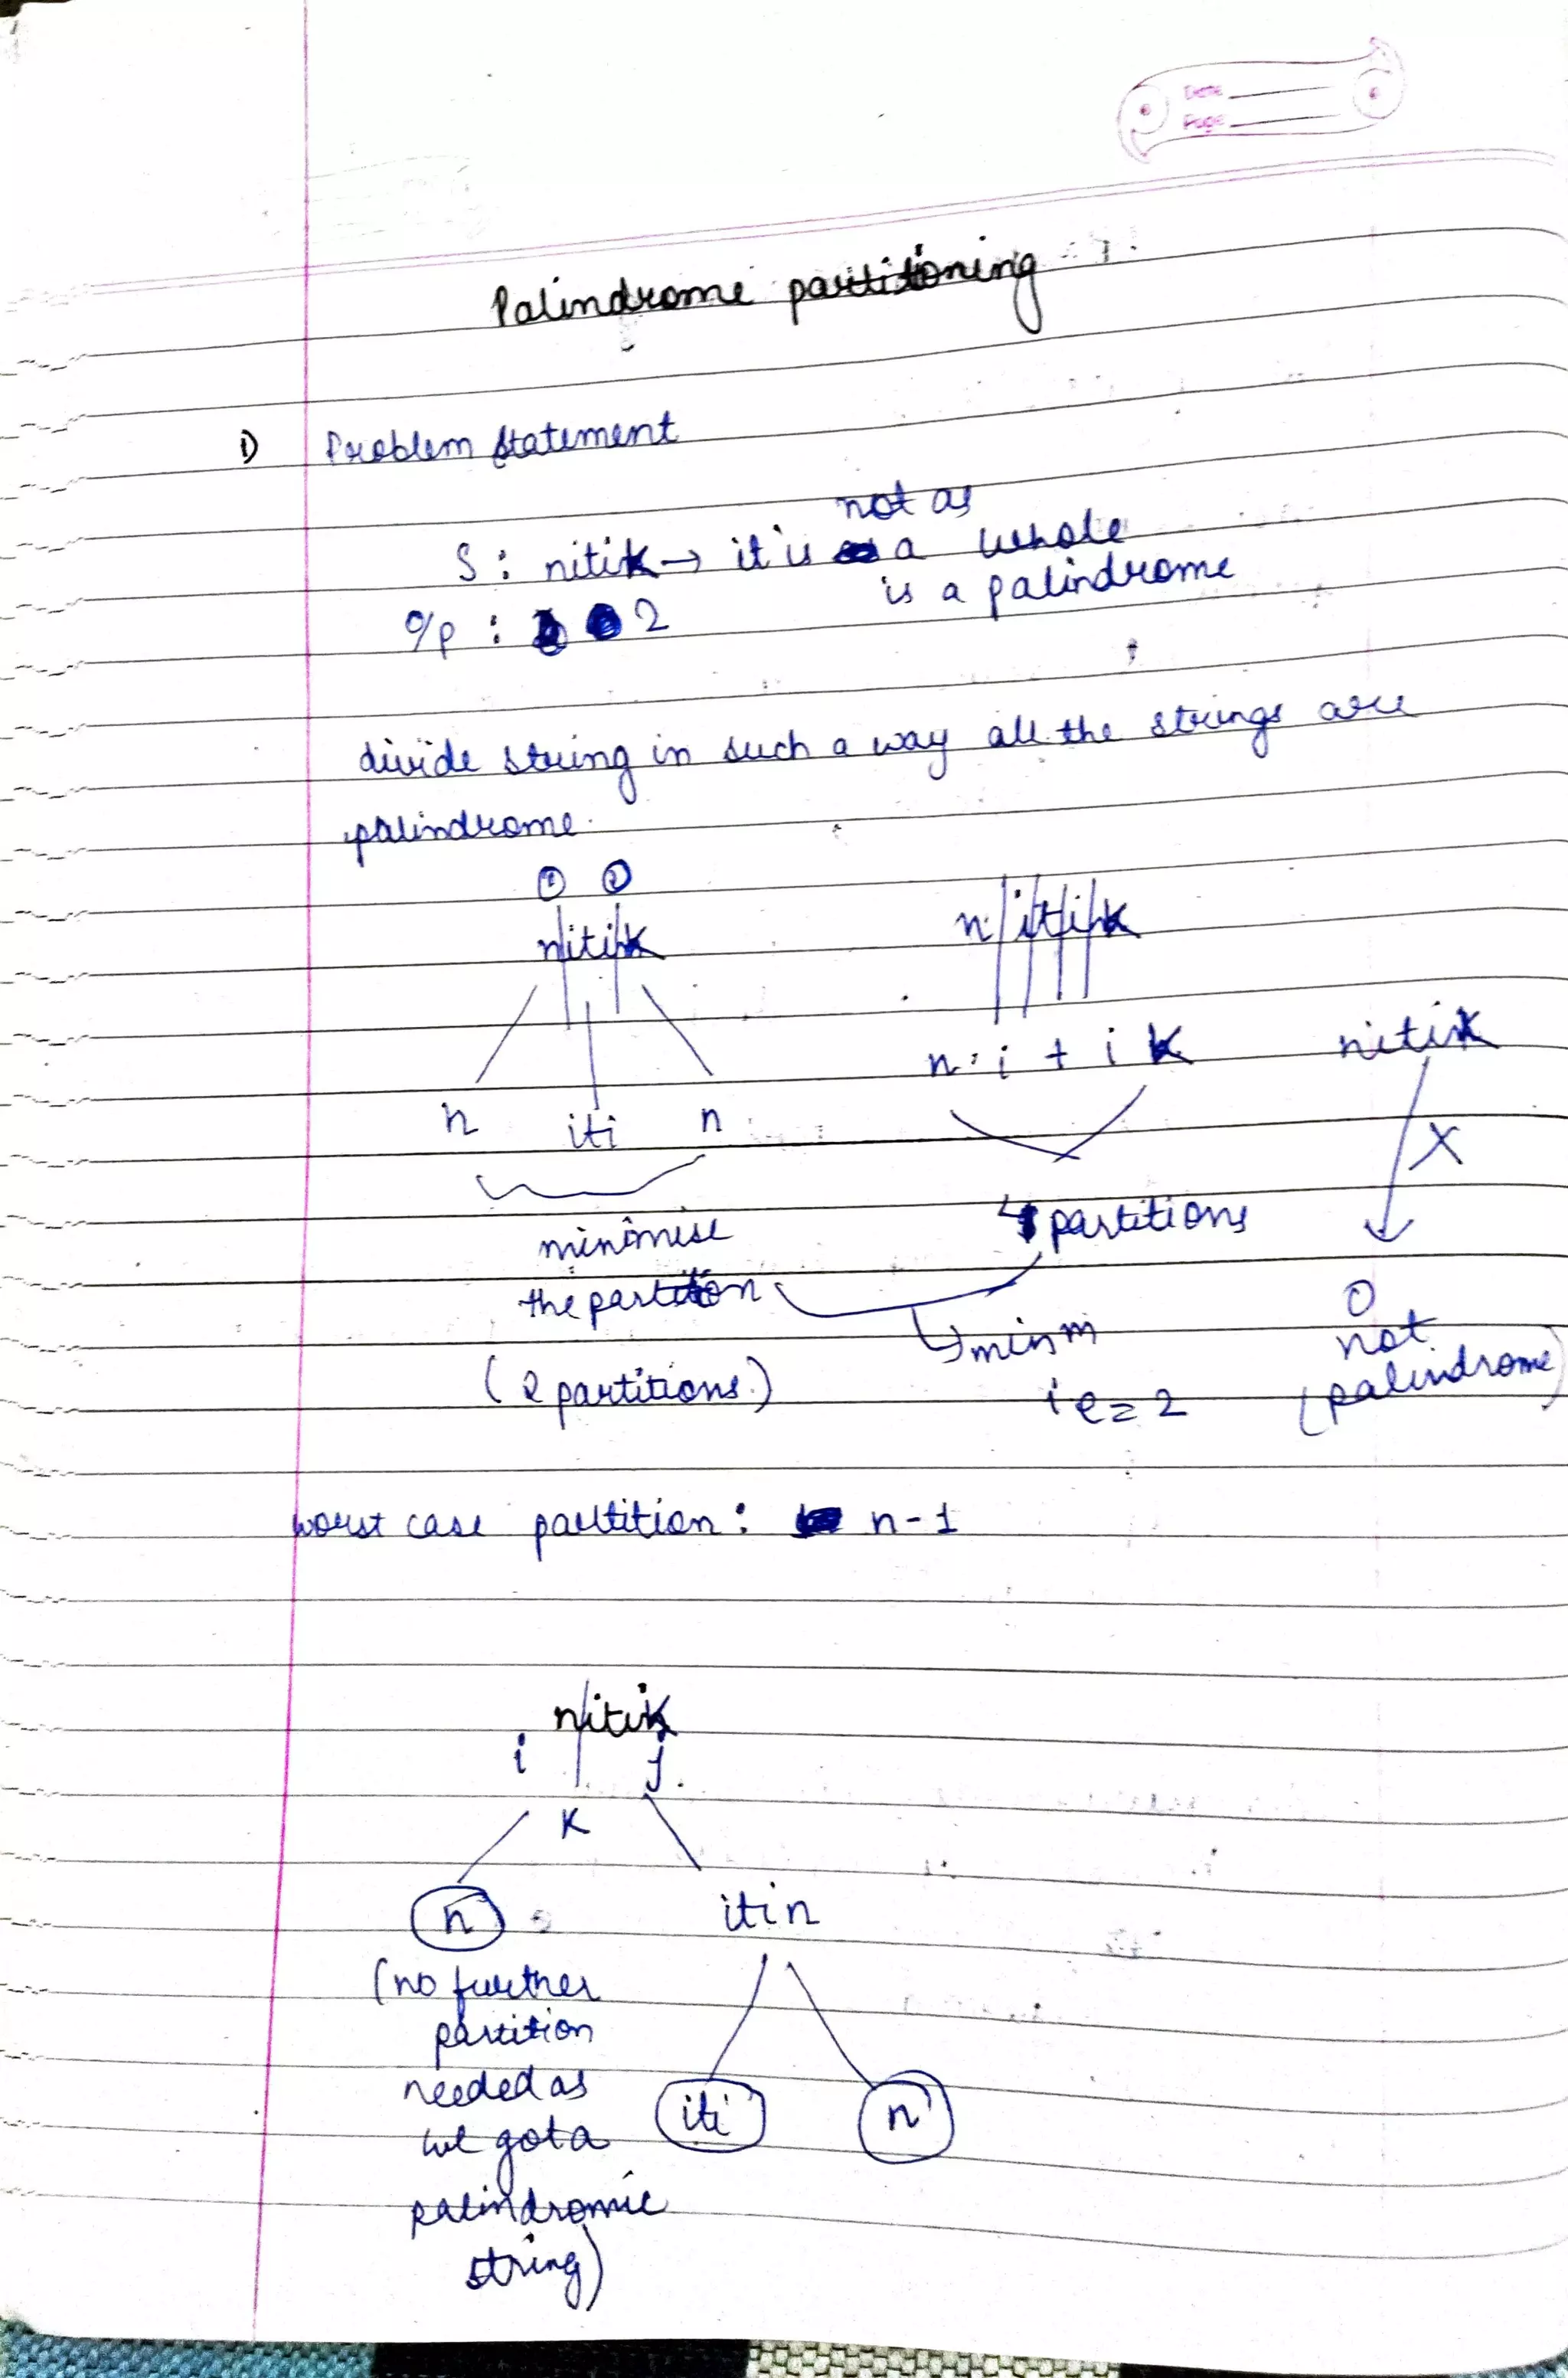 Date
Page
Palindrome partitioning
1) Problem statement
not as
S : nitik → it is a whole
is a palindrome
O/p : 2
divide string in such a way all the strings are
palindrome.
① ②
nitik n i t i k
n i t i k nitik
n iti n X
minimise 4 partitions
the partition 0
minm not
(2 partitions.) ie = 2 (palindrome)
worst case partition : n-1
nitik
i j
K
n itin
(no further
partition
needed as
we got a iti n
palindromic
string)